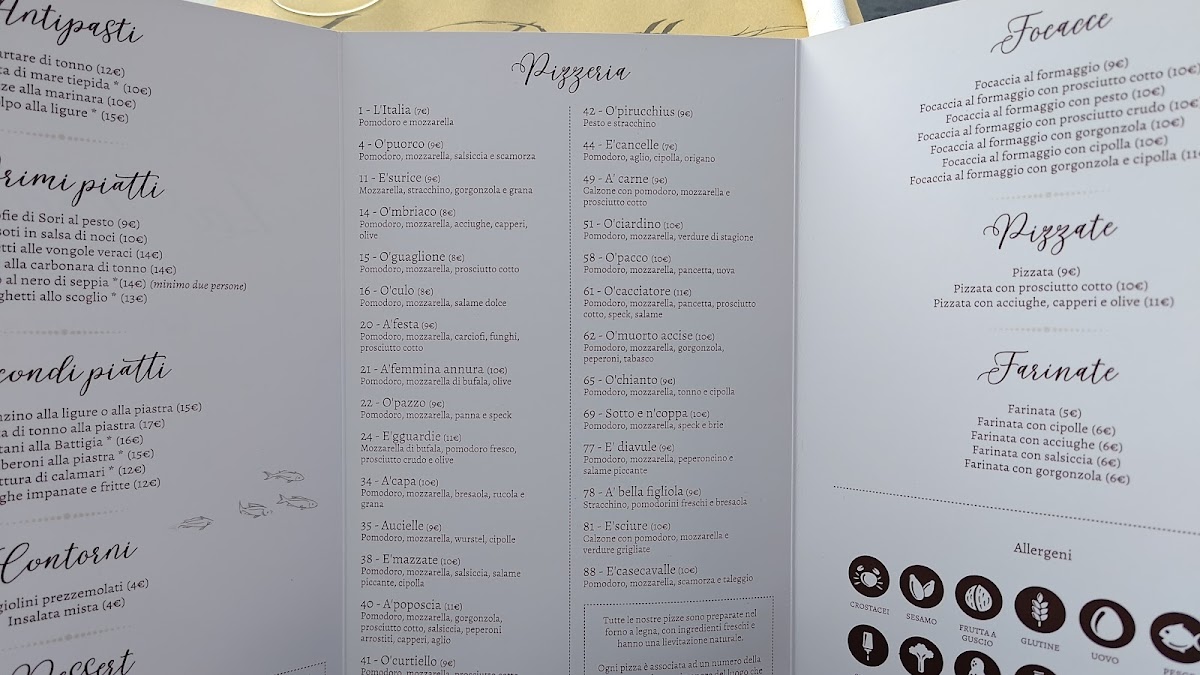 Antipasti
di tonno (12€)
di mare tiepida * (10€)
alla marinara (10€)
alla ligure * (15€)
piatti
di Sori al pesto (9€)
in salsa di noci (10€)
alle vongole veraci (14€)
alla carbonara di tonno (14€)
al nero di seppia *(14€) (minimo due persone)
allo scoglio * (13€)
piatti
alla ligure o alla piastra (15€)
di tonno alla piastra (17€)
alla Battigia * (16€)
alla piastra * (15€)
di calamari * (12€)
impanate e fritte (12€)
Contorni
prezzemolati (4€)
Insalata mista (4€)
Dessert
Pizzeria
1 - L'Italia (7€)
Pomodoro e mozzarella
4 - O'puorco (9€)
Pomodoro, mozzarella, salsiccia e scamorza
11 - E'surice (9€)
Mozzarella, stracchino, gorgonzola e grana
14 - O'mbriaco (8€)
Pomodoro, mozzarella, acciughe, capperi,
olive
15 - O'guaglione (8€)
Pomodoro, mozzarella, prosciutto cotto
16 - O'culo (8€)
Pomodoro, mozzarella, salame dolce
20 - A'festa (9€)
Pomodoro, mozzarella, carciofi, funghi,
prosciutto cotto
21 - A'femmina annura (10€)
Pomodoro, mozzarella di bufala, olive
22 - O'pazzo (9€)
Pomodoro, mozzarella, panna e speck
24 - E'gguardie (11€)
Mozzarella di bufala, pomodoro fresco,
prosciutto crudo e olive
34 - A'capa (10€)
Pomodoro, mozzarella, bresaola, rucola e
grana
35 - Aucielle (9€)
Pomodoro, mozzarella, wurstel, cipolle
38 - E'mazzate (10€)
Pomodoro, mozzarella, salsiccia, salame
piccante, cipolla
40 - A'poposcia (11€)
Pomodoro, mozzarella, gorgonzola,
prosciutto cotto, salsiccia, peperoni
arrostiti, capperi, aglio
41 - O'curtiello (9€)
Pomodoro, mozzarella, prosciutto
42 - O'pirucchius (9€)
Pesto e stracchino
44 - E'cancelle (7€)
Pomodoro, aglio, cipolla, origano
49 - A' carne (9€)
Calzone con pomodoro, mozzarella e
prosciutto cotto
51 - O'ciardino (10€)
Pomodoro, mozzarella, verdure di stagione
58 - O'pacco (10€)
Pomodoro, mozzarella, pancetta, uova
61 - O'cacciatore (11€)
Pomodoro, mozzarella, pancetta, prosciutto
cotto, speck, salame
62 - O'muorto accise (10€)
Pomodoro, mozzarella, gorgonzola,
peperoni, tabasco
65 - O'chianto (9€)
Pomodoro, mozzarella, tonno e cipolla
69 - Sotto e n'coppa (10€)
Pomodoro, mozzarella, speck e brie
77 - E' diavule (9€)
Pomodoro, mozzarella, peperoncino e
salame piccante
78 - A' bella figliola (9€)
Stracchino, pomodorini freschi e bresaola
81 - E'sciure (10€)
Calzone con pomodoro, mozzarella e
verdure grigliate
88 - E'casecavalle (10€)
Pomodoro, mozzarella, scamorza e taleggio
Tutte le nostre pizze sono preparate nel
forno a legna, con ingredienti freschi e
hanno una lievitazione naturale.
Ogni pizza è associata ad un numero della
Focacce
Focaccia al formaggio (9€)
Focaccia al formaggio con prosciutto cotto (10€)
Focaccia al formaggio con pesto (10€)
Focaccia al formaggio con prosciutto crudo (10€
Focaccia al formaggio con gorgonzola (10€)
Focaccia al formaggio con cipolla (10€)
Focaccia al formaggio con gorgonzola e cipolla (11€
Pizzate
Pizzata (9€)
Pizzata con prosciutto cotto (10€)
Pizzata con acciughe, capperi e olive (11€)
Farinate
Farinata (5€)
Farinata con cipolle (6€)
Farinata con acciughe (6€)
Farinata con salsiccia (6€)
Farinata con gorgonzola (6€)
Allergeni
CROSTACEI
SESAMO
FRUTTA A
GUSCIO
GLUTINE
UOVO